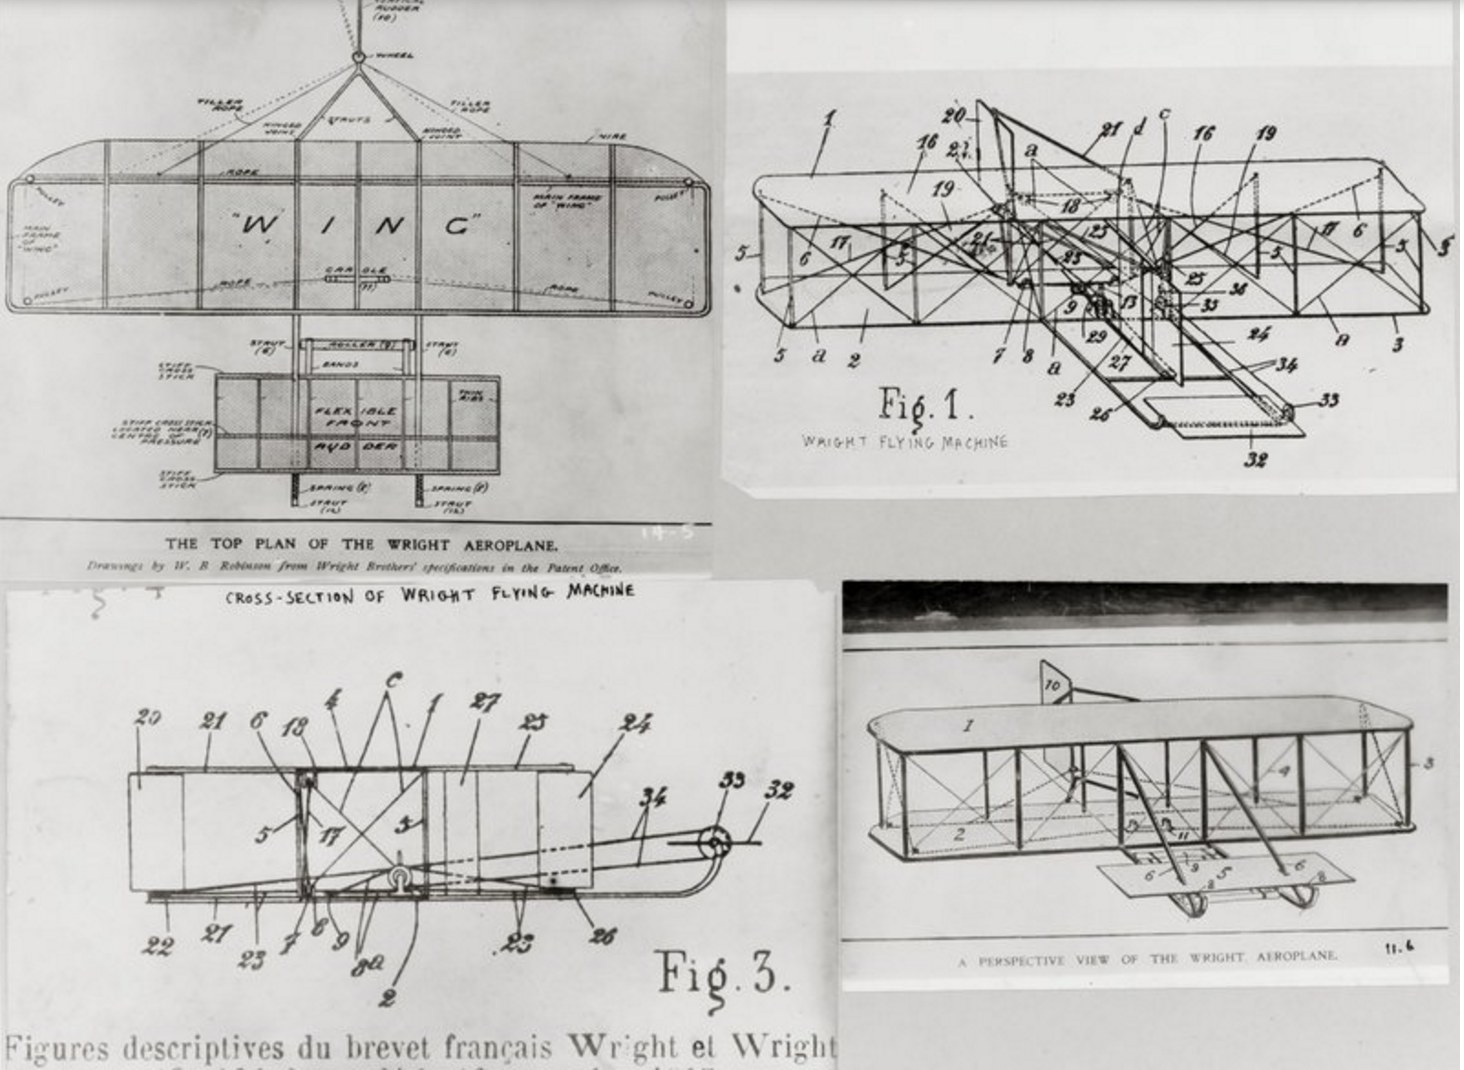 VERTICAL
RUDDER
(10)
WHEEL
TILLER
ROPE
TILLER
ROPE
HINGED
JOINT
STRUTS
HINGED
JOINT
WIRE
ROPE
PULLEY
PULLEY
MAIN FRAME
OF "WING"
MAIN
FRAME
OF
"WING"
"WING"
CRADLE
(11)
ROPE
ROPE
PULLEY
PULLEY
STRUT
(6)
ROLLER (9)
STRUT
(6)
BANDS
STIFF
CROSS
STICK
THIN
RIBS
FLEXIBLE
FRONT
RUDDER
STIFF CROSS STICK
LOCATED NEAR (7)
CENTRE OF
PRESSURE
STIFF
CROSS
STICK
SPRING (8)
SPRING (8)
STRUT
(12)
STRUT
(12)
14-5
THE TOP PLAN OF THE WRIGHT AEROPLANE.
Drawings by W. B Robinson from Wright Brothers' specifications in the Patent Office.
1 20 21 d c 16 19
16 a
19 18
5 6 17 5 23 17 6 5
9 13 25 36 35
5 a 2 7 8 a 29 27 24 a 3
34
23 26 33
32
Fig. 1.
WRIGHT FLYING MACHINE
CROSS-SECTION OF WRIGHT FLYING MACHINE
20 21 6 18 4 C 1 27 25 24
34 33 32
5 17 5
22 21 23 7 6 9 8a 23 26
2
Fig. 3.
Figures descriptives du brevet français Wright et Wright
10
1
3
4
2
11
6 9 5 6
8 8
A PERSPECTIVE VIEW OF THE WRIGHT AEROPLANE.
11.6